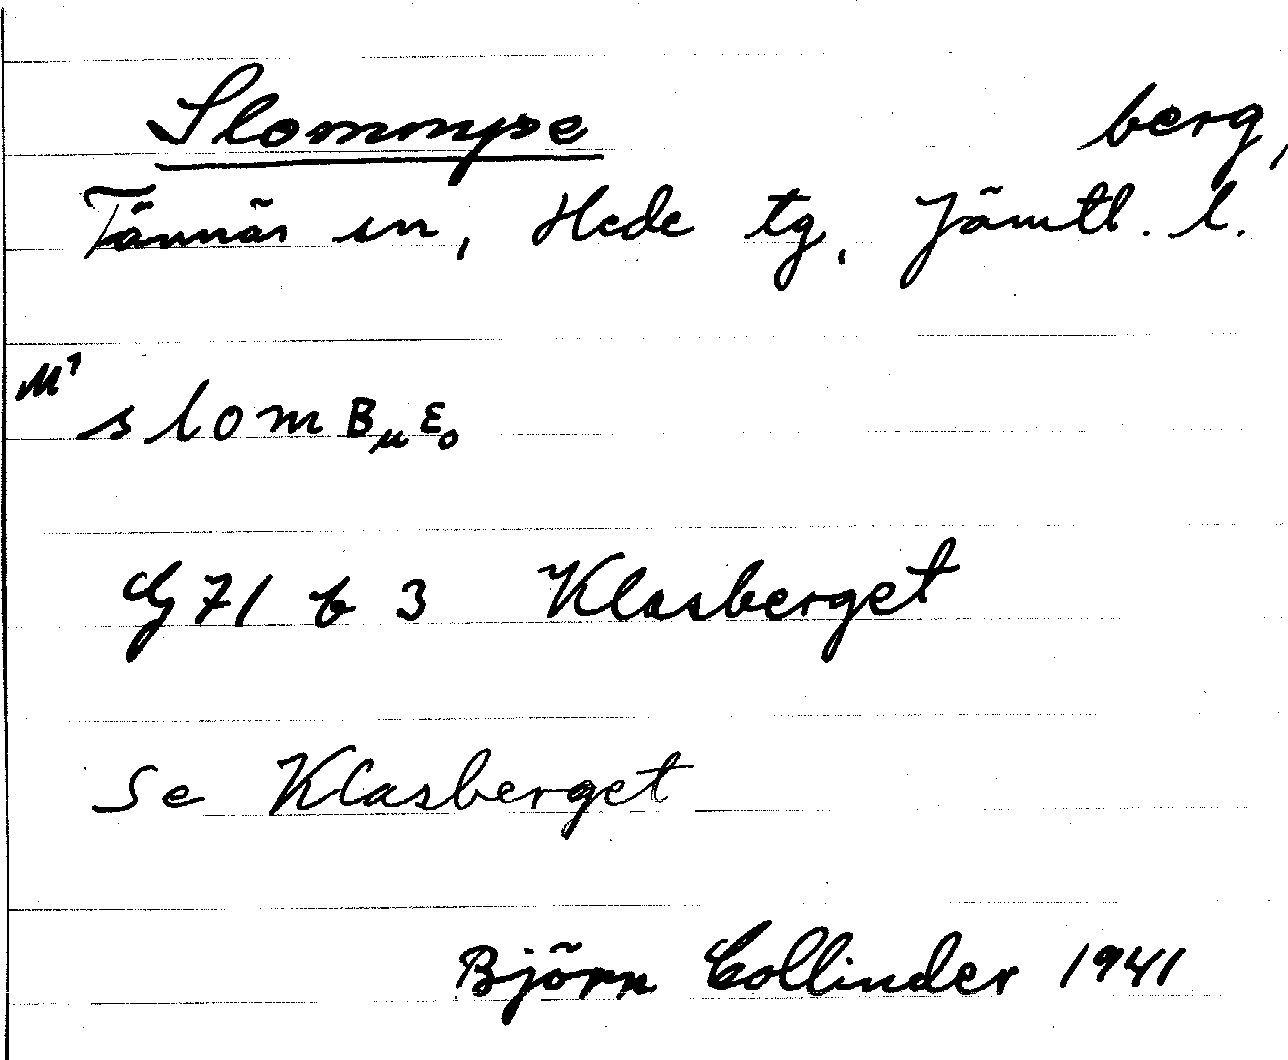 Slommpe berg,
Tännäs sn, Hede tg, Jämtl. l.
M¹ slomBµɛ₀
G 71 b 3 Klasberget
Se Klasberget
Björn Collinder 1941